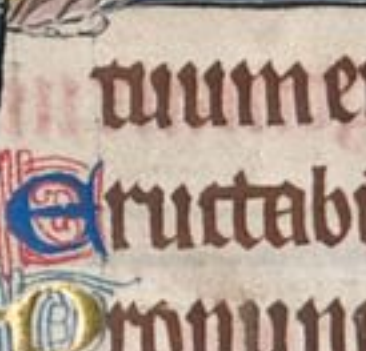 tuum er
Eructabi
Pronun